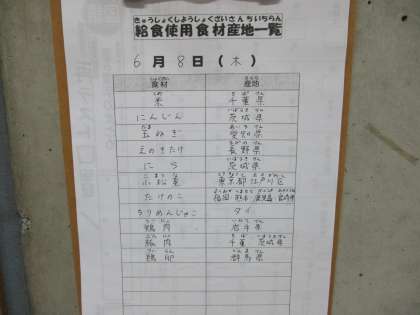 きゅうしょくしようしょくざいさんちいちらん
給食使用食材産地一覧
6月8日(木)
食材 産地
米 千葉県
にんじん 茨城県
玉ねぎ 愛知県
えのきたけ 長野県
にら 茨城県
小松菜 東京都江戸川区
たけのこ 福岡 熊本 鹿児島 宮崎県
ちりめんじゃこ タイ
鶏肉 岩手県
豚肉 千葉 茨城県
鶏卵 群馬県